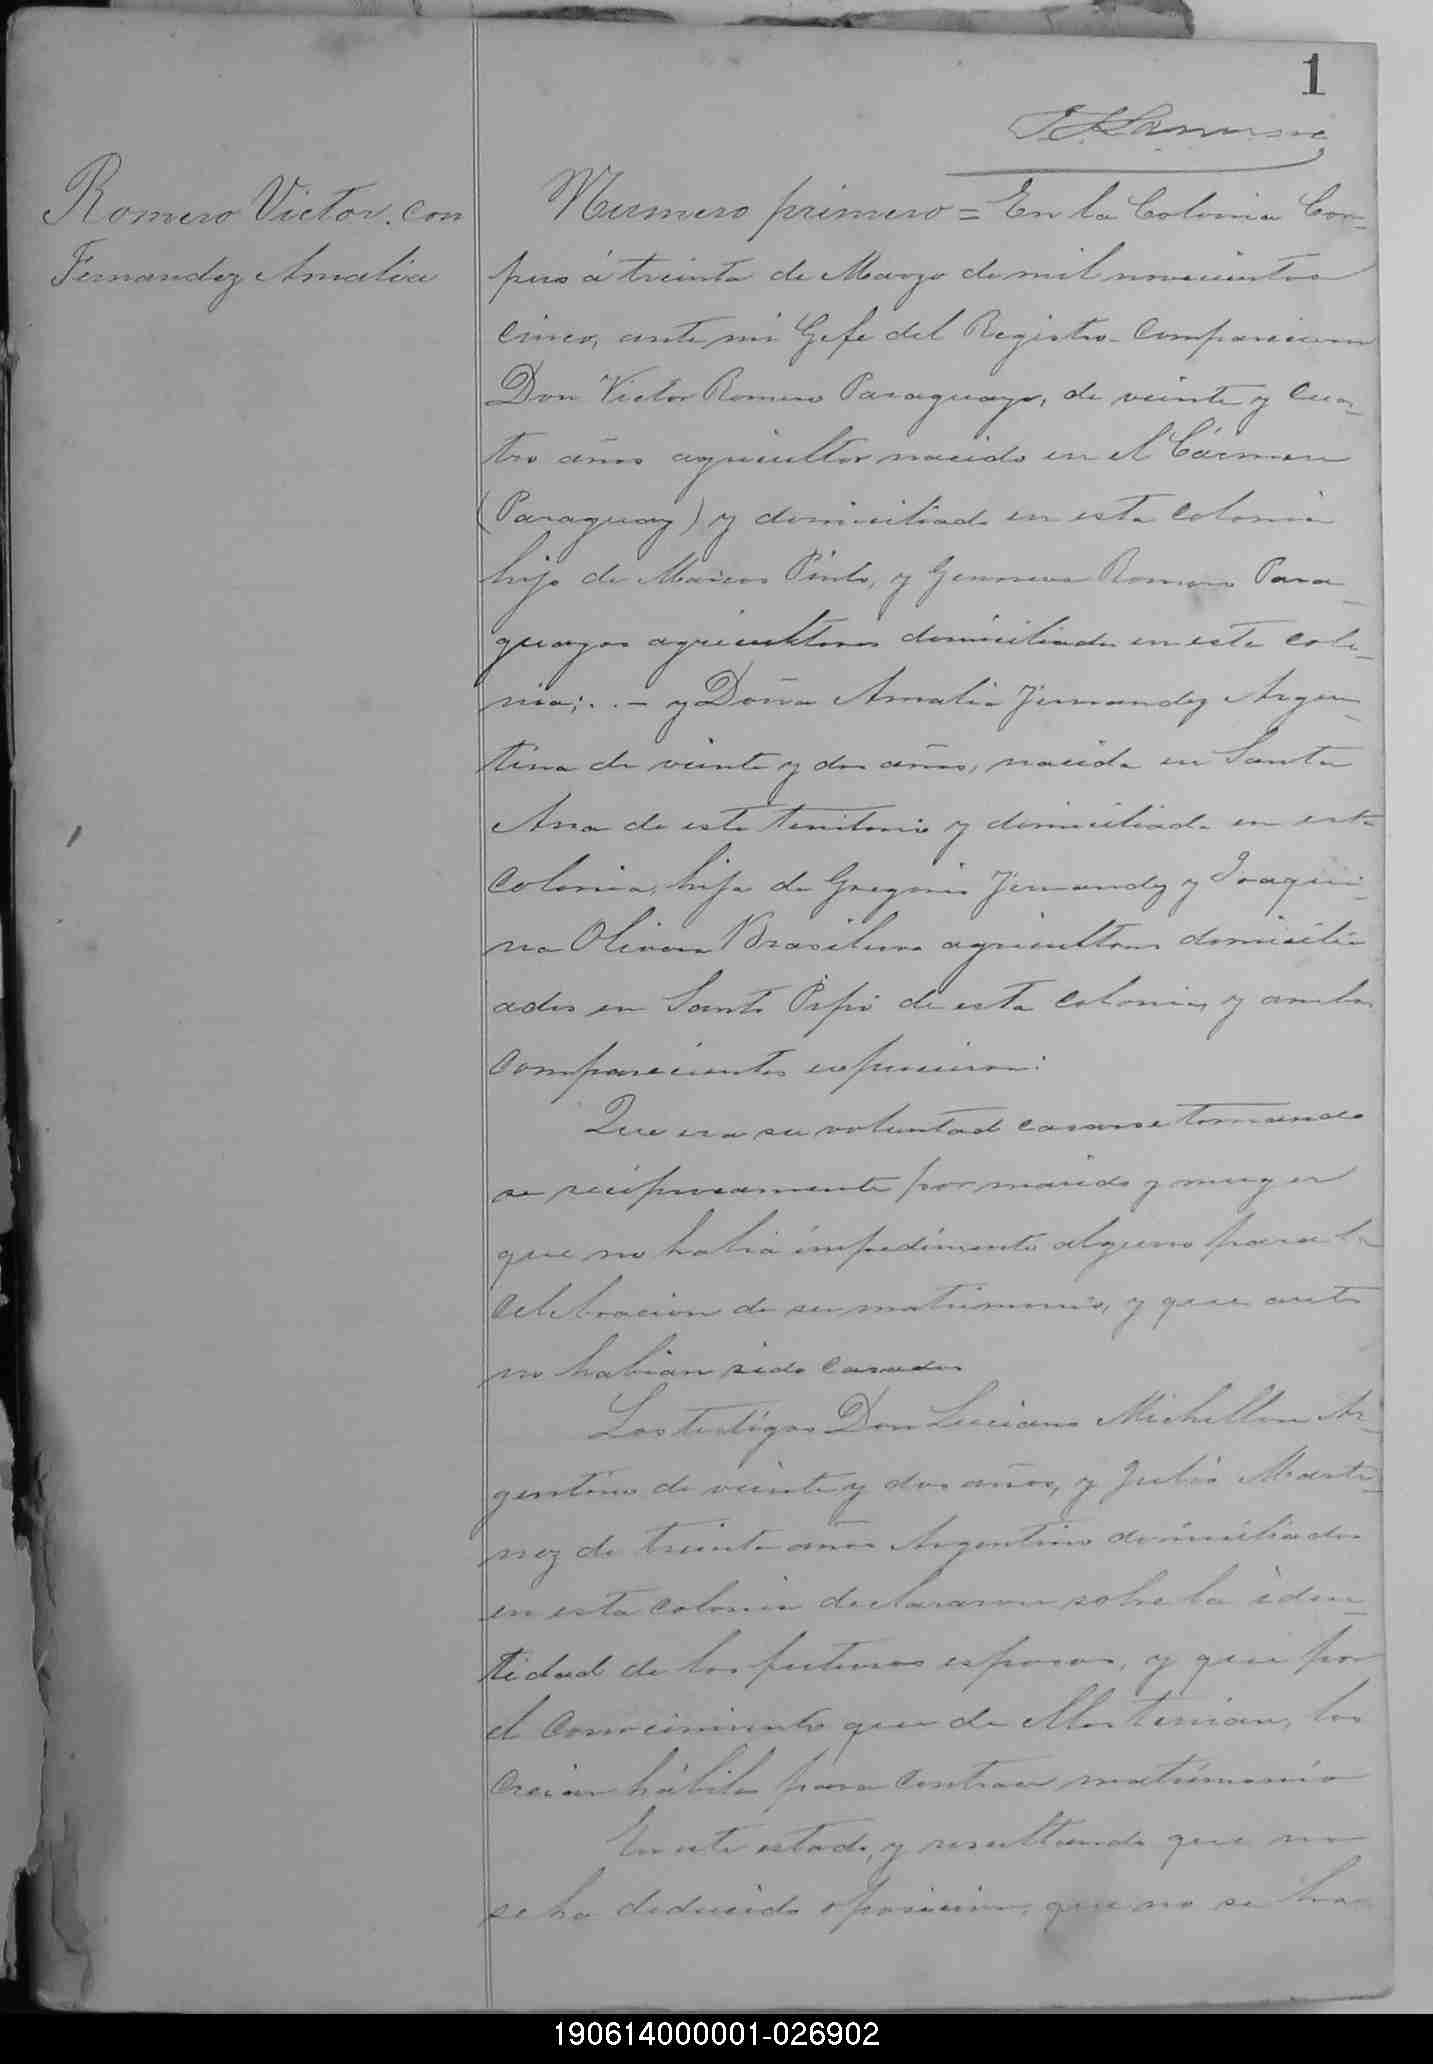 1
Romero Victor. con
Fernandez Amalia
Numero primero = En la Colonia Cor-
pus á treinta de Marzo de mil novecientos
cinco, ante mi Gefe del Registro comparecieron
Don Victor Romero Paraguayo, de veinte y cua-
tro años agricultor nacido en el Cármen
(Paraguay) y domiciliado en esta colonia
hijo de Marcos Pinto, y Genoveva Romero Para-
guayos agricultores domiciliados en esta colo-
nia; . . - y Doña Amalia Fernandez Argen-
tina de veinte y dos años, nacida en Santa
Ana de este territorio y domiciliada en esta
colonia, hija de Gregorio Fernandez y Joaqui-
na Olivera Brasileros agricultores domicili
ados en Santo Pipó de esta colonia, y ambos
comparecientes expusieron:
Que era su voluntad casarse tomando
se reciprocamente por marido y muger
que no habia impedimento alguno para la
celebracion de su matrimonio, y que antes
no habian sido casados
Los testigos Don Luciano Michellon Ar-
gentino de veinte y dos años, y Julio Marti-
nez de treinta años Argentino domiciliados
en esta colonia declararon sobre la iden-
tidad de los futuros esposos, y que por
el conocimiento que de ellos tenian, los
creian hábiles para contraer matrimonio
En este estado, y resultando que no
se ha deducido oposicion, que no se ha
190614000001-026902